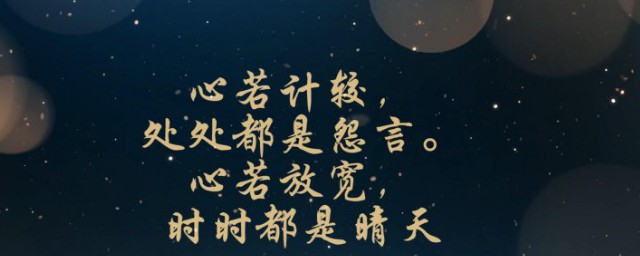 心若计较，
处处都是怨言。
心若放宽，
时时都是晴天